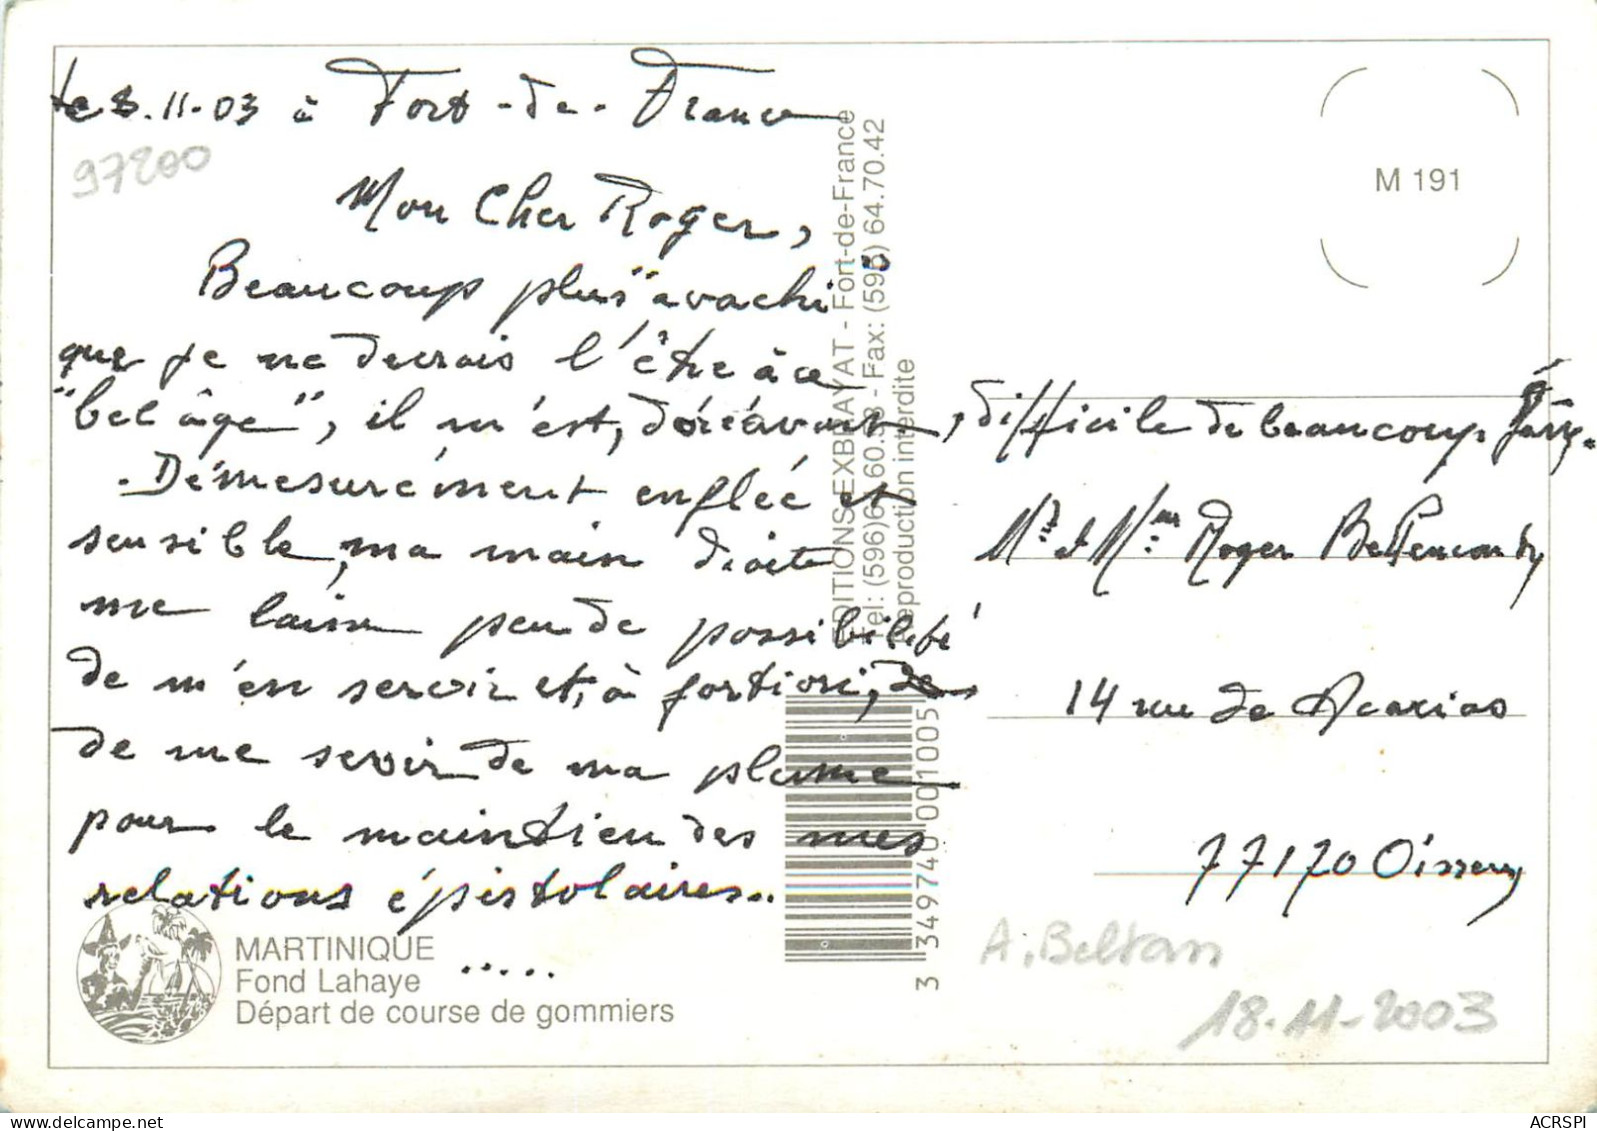 Le 8.11.03 à Fort-de-France
97200
Mon Cher Roger,
Beaucoup plus "avachi"
que je ne devrais l'être à ce
"bel âge", il m'est, doréavant, difficile de beaucoup
. Démesurément enflée et
sensible, ma main droite
me laisse peu de possibilité
de m'en servoir et, à fortiori,
de me servir de ma plume
pour le maintien des mes
relations épistolaires..
.....
MARTINIQUE
Fond Lahaye
Départ de course de gommiers
EDITIONS EXBRAYAT - Fort-de-France
Tel: (596) 60.58 - Fax: (596) 64.70.42
Reproduction interdite
3 349740 001005
M 191
Mr et Mme Roger Bettencourt
14 rue de Acacias
77170
A. Beltan
18-11-2003
ACRSPI